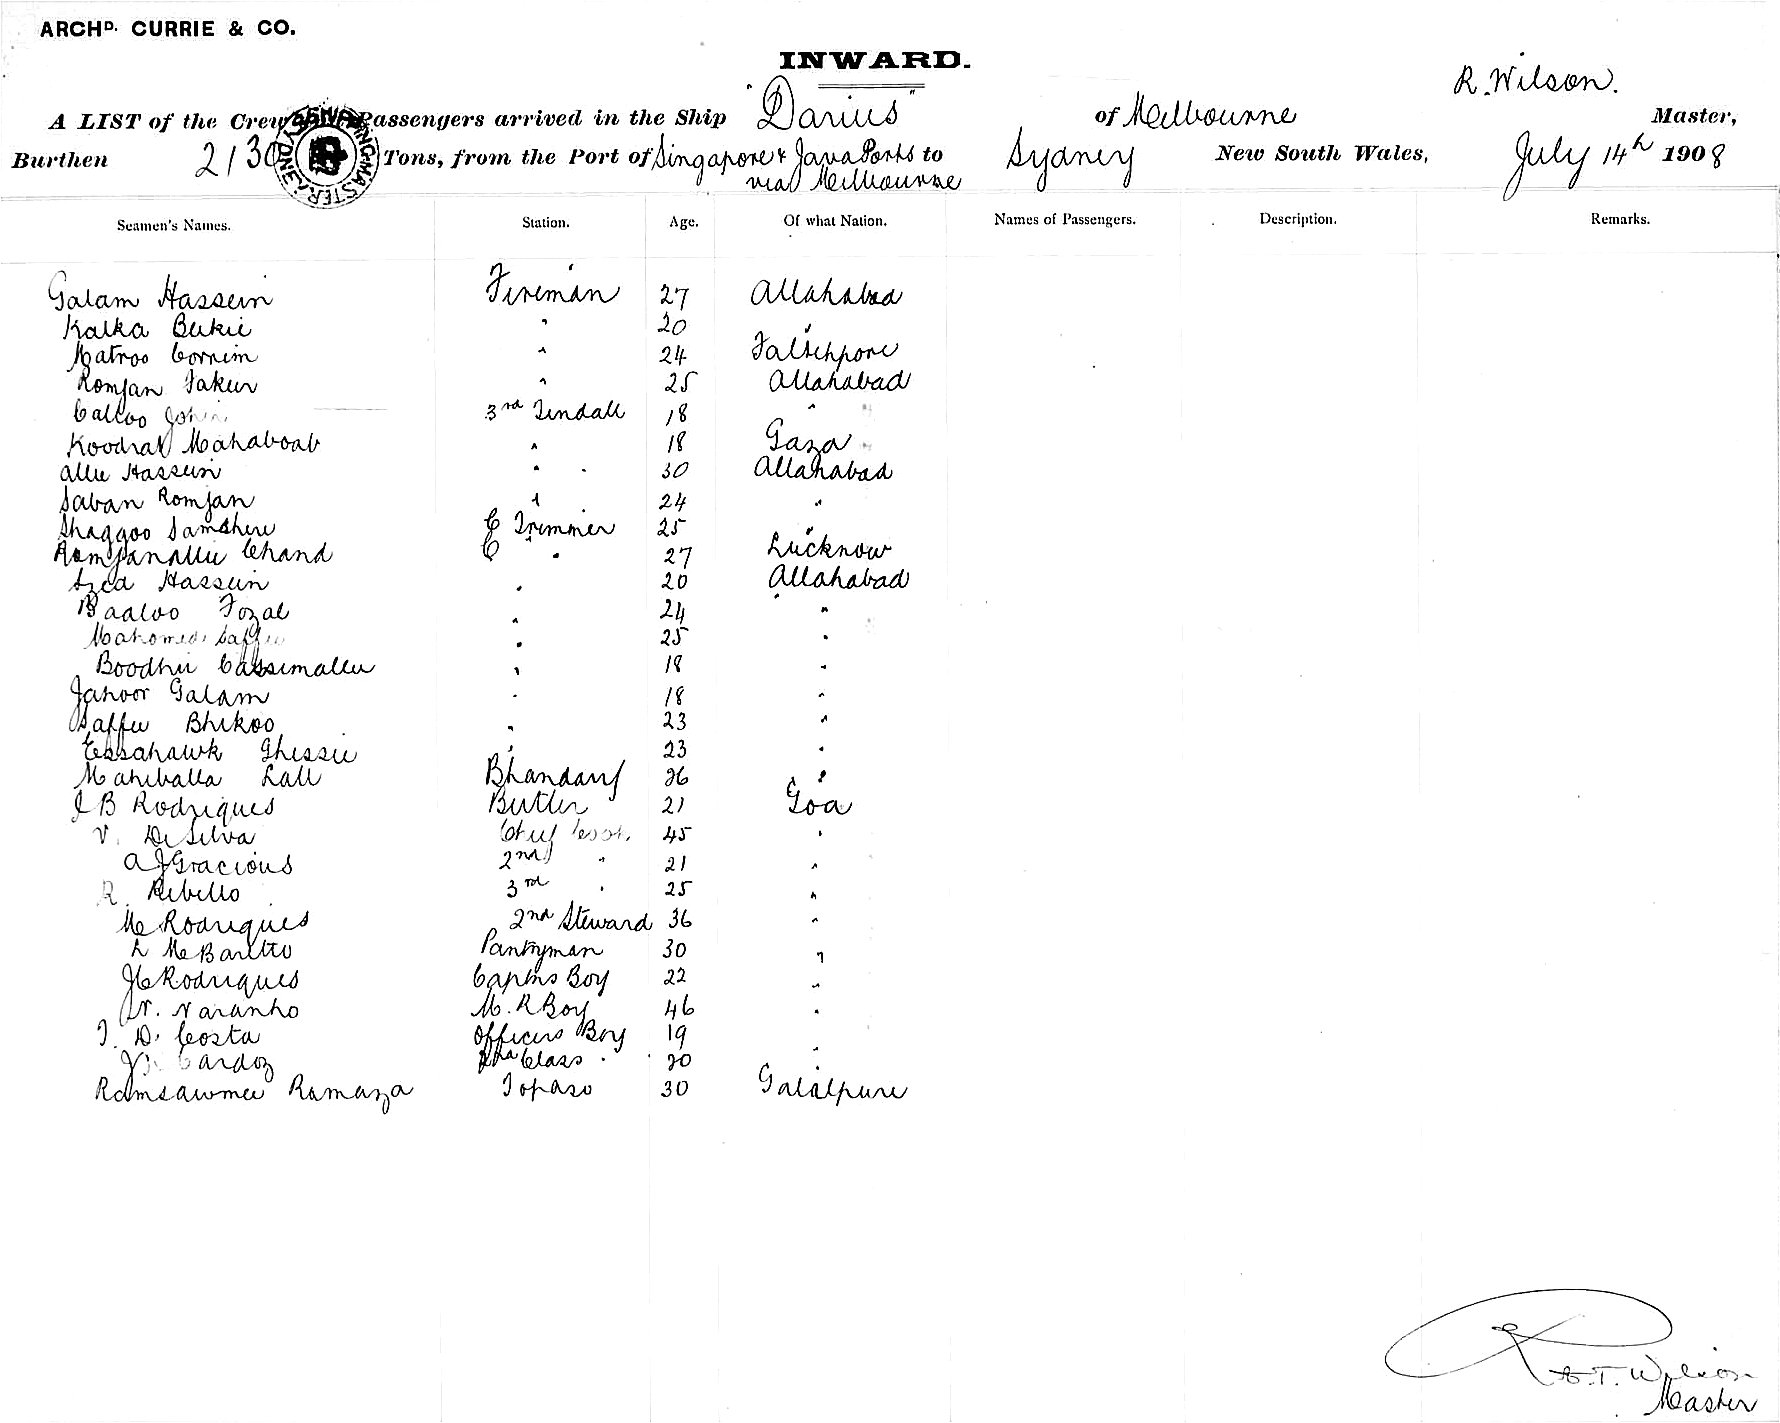 ARCHD. CURRIE & CO.
INWARD.
R. Wilson.
A LIST of the Crew Passengers arrived in the Ship "Darius" of Melbourne Master,
Burthen 2130 Tons, from the Port of Singapore & Java Ports to Sydney New South Wales, July 14th 1908
via Melbourne
Seamen's Names. Station. Age. Of what Nation. Names of Passengers. Description. Remarks.
Galam Hassein Fireman 27 Allahabad
Kalka Bukie " 20 "
Matroo Corrim " 24 Faltehpore
Romjan Fakur " 25 Allahabad
Calloo John 3rd Tindall 18 "
Koodrat Mahaboob " 18 Gaza
Allie Hassein " 30 Allahabad
Saban Romjan " 24 "
Shaggoo Samsheru C Trimmer 25 "
Romjanallie Chand C " 27 Lucknow
Hassein " 20 Allahabad
Baaloo Fozal " 24 "
Mahomed Saffie " 25 "
Boodhii Cassimallie " 18 "
Jahoor Galam " 18 "
Saffie Bhikoo " 23 "
Essahawk Ghissie " 23 "
Mahiballa Lall Bhandary 26 "
J B Rodrigues Butler 21 Goa
V. De Silva Chief Cook 45 "
A J Gracious 2nd " 21 "
R. Rebello 3rd " 25 "
M Rodrigues 2nd Steward 36 "
L M Baretto Pantryman 30 "
J C Rodrigues Captns Boy 22 "
N. Naranho M. R Boy 46 "
J. D. Costa Officers Boy 19 "
Cardoz 2nd Class " 20 "
Ramsawmee Ramaza Topaso 30 Galalpure
R. T. Wilson
Master